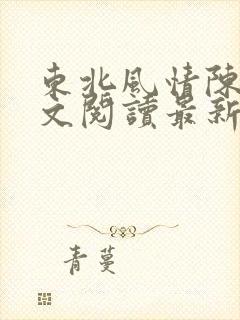 東北風情陳
文閱讀最新
青蔓